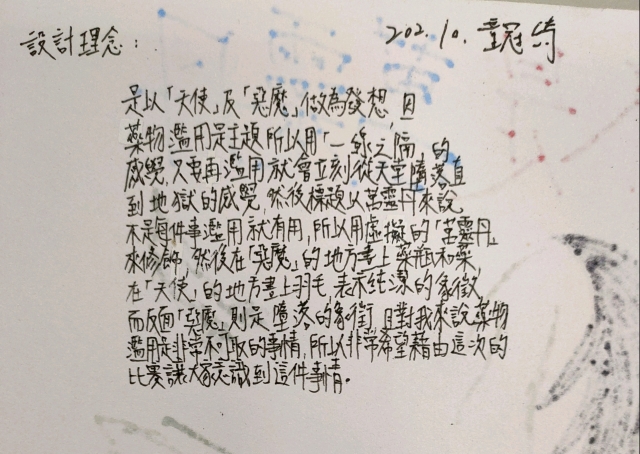 設計理念：
202.10. 童冠綺
是以「天使」及「惡魔」做為發想，因
藥物濫用是主題所以用「一線之隔」的
感覺，只要再濫用就會立刻從天堂墮落直
到地獄的感覺，然後標題以萬靈丹來說
不是每件事濫用就有用，所以用虛擬的「萬靈丹」
來修飾，然後在「惡魔」的地方畫上藥瓶和藥，
在「天使」的地方畫上羽毛，表示純潔的象徵，
而反面「惡魔」則是墮落的象徵，且對我來說藥物
濫用是非常不可取的事情，所以非常希望藉由這次的
比賽讓大家意識到這件事情。